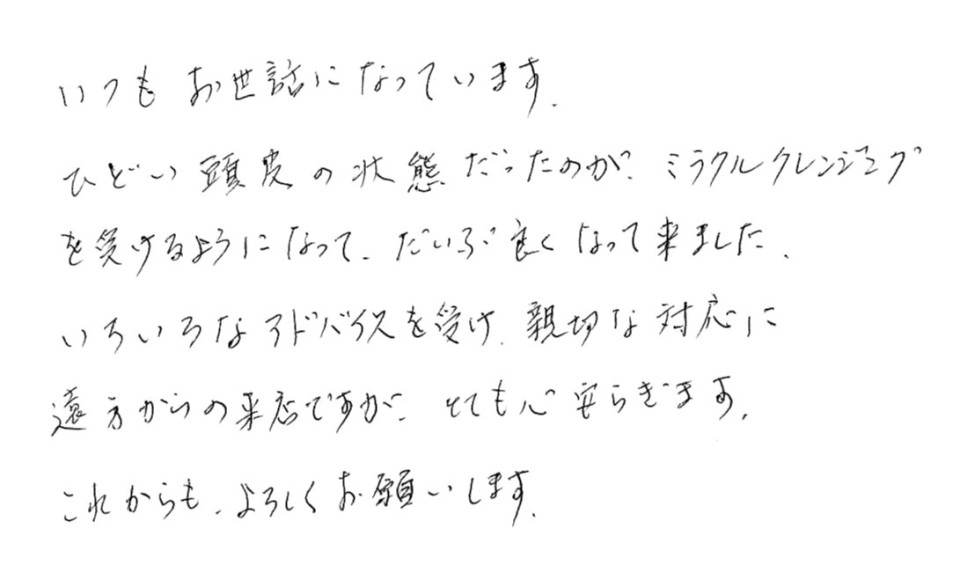 いつもお世話になっています.
ひどい頭皮の状態だったのが、ミラクルクレンジング
を受けるようになって、だいぶ良くなって来ました.
いろいろなアドバイスを受け、親切な対応に
遠方からの来店ですが、とても心安らぎます.
これからも、よろしくお願いします.